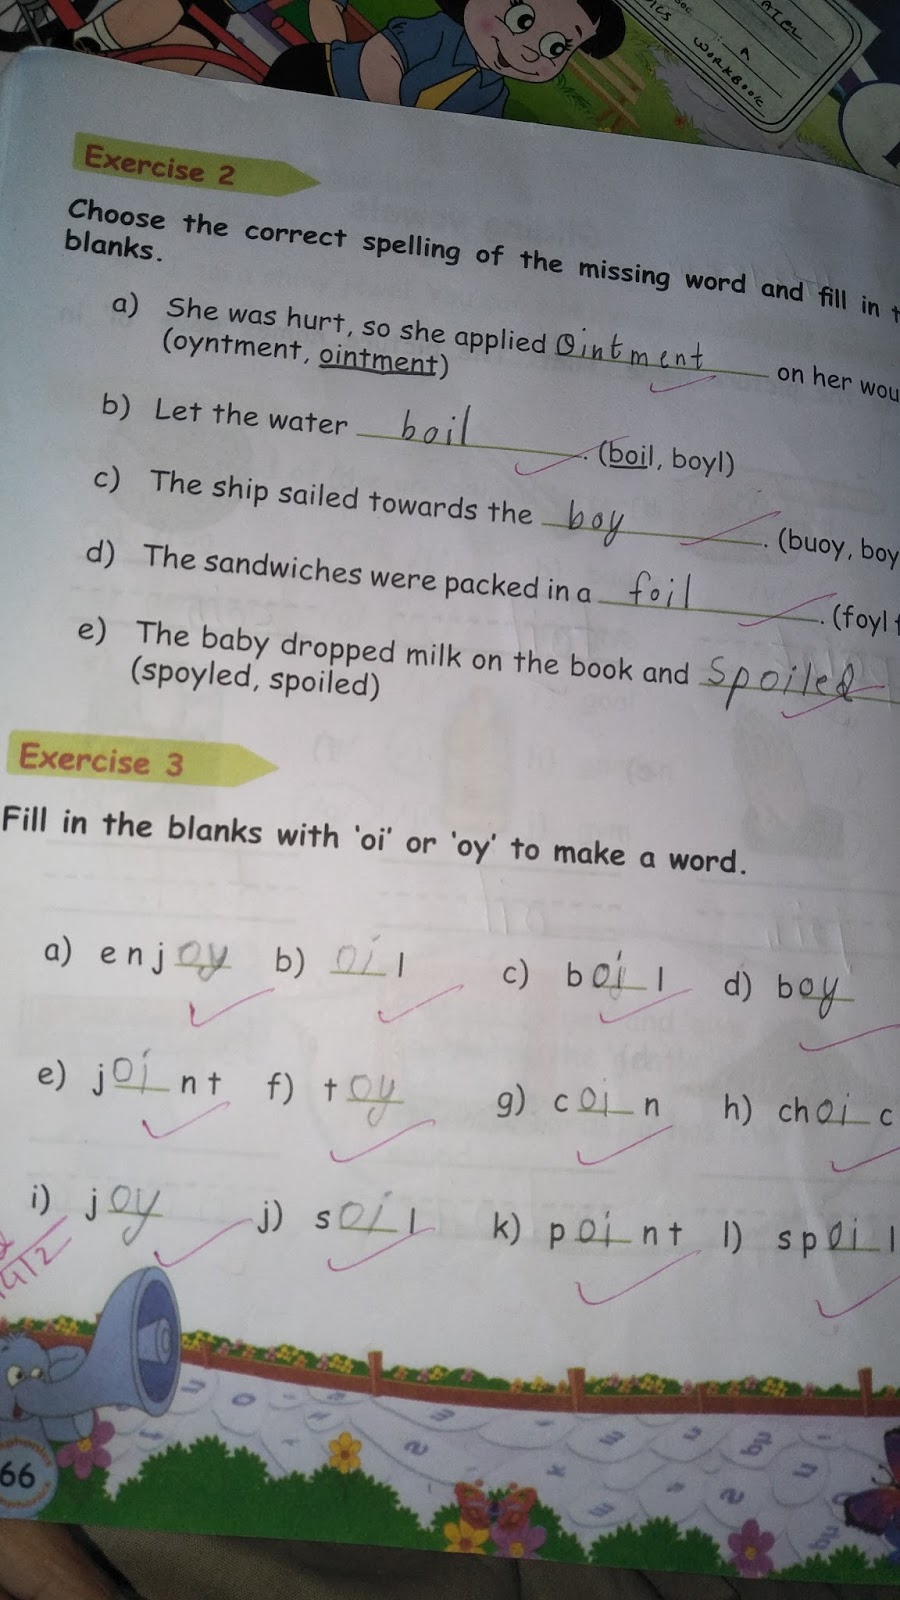 WORKBOOK
Exercise 2
Choose the correct spelling of the missing word and fill in
blanks.
a) She was hurt, so she applied Ointment on her
(oyntment, ointment)
b) Let the water boil. (boil, boyl)
c) The ship sailed towards the boy. (buoy, boy
d) The sandwiches were packed in a foil. (foyl
e) The baby dropped milk on the book and Spoiled
(spoyled, spoiled)
Exercise 3
Fill in the blanks with 'oi' or 'oy' to make a word.
a) enjoy b) oil c) boil d) boy
e) joint f) toy g) coin h) choic
i) joy j) soil k) point l) spoil
66